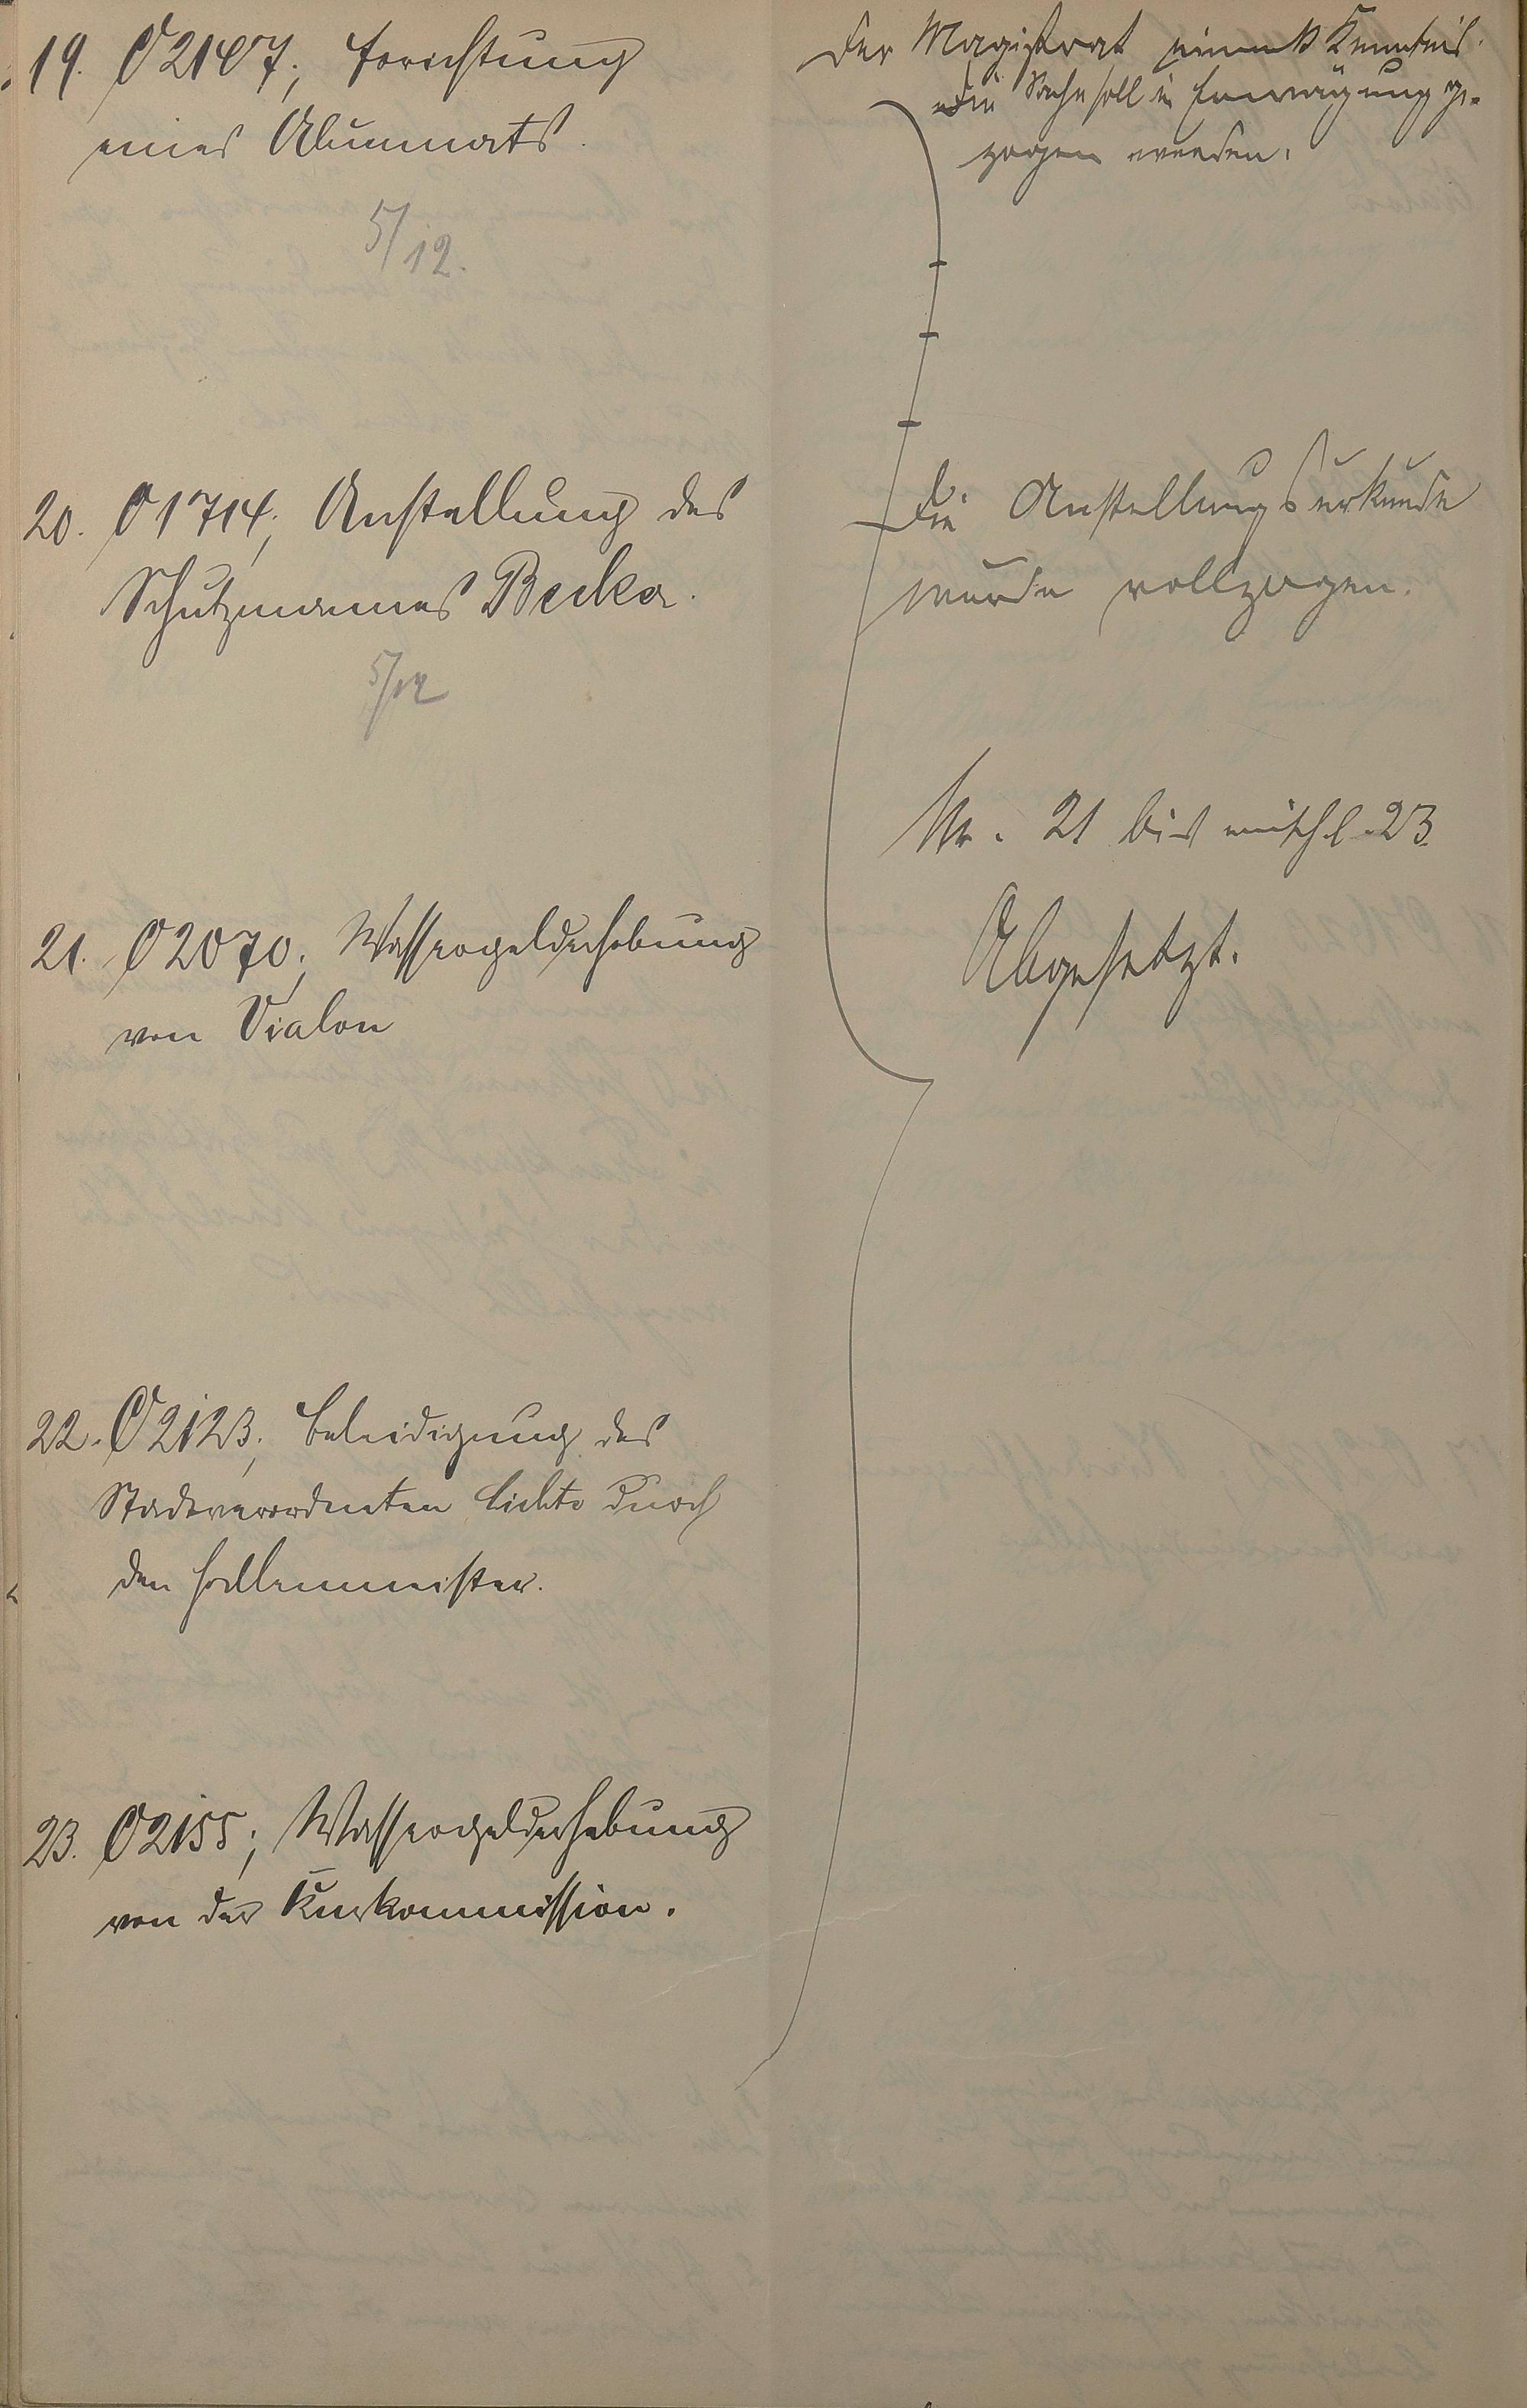 19. O 2167; Errichtung
eines Alumnats.
5/12.
Der Magistrat nimmt Kenntnis.
Die Sache soll in Erwägung ge-
zogen werden.
20. O 1714; Anstellung des
Schutzmannes Becker.
5/12
Die Anstellungsurkunde
wurde vollzogen.
Nr. 21 bis einschl. 23
Abgesetzt.
21. O 2070; Wassergelderhebung
von Vialon
22. O 2123; Beleidigung des
Stadtverordneten Lichte durch
den Hallenmeister.
23. O 2155; Wassergelderhebung
von der Kurkommission.